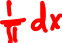 1/π dx